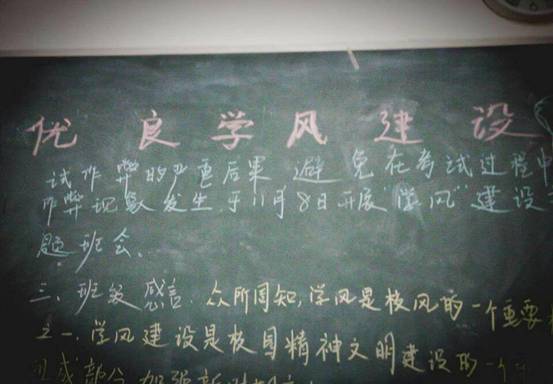 优良学风建设
试作弊的严重后果 避免在考试过程中
作弊现象发生,于11月8日开展"学风"建设
题班会、
三、班级感言:众所周知,学风是校风的一个重要
之一、学风建设是校园精神文明建设的一个
成部分